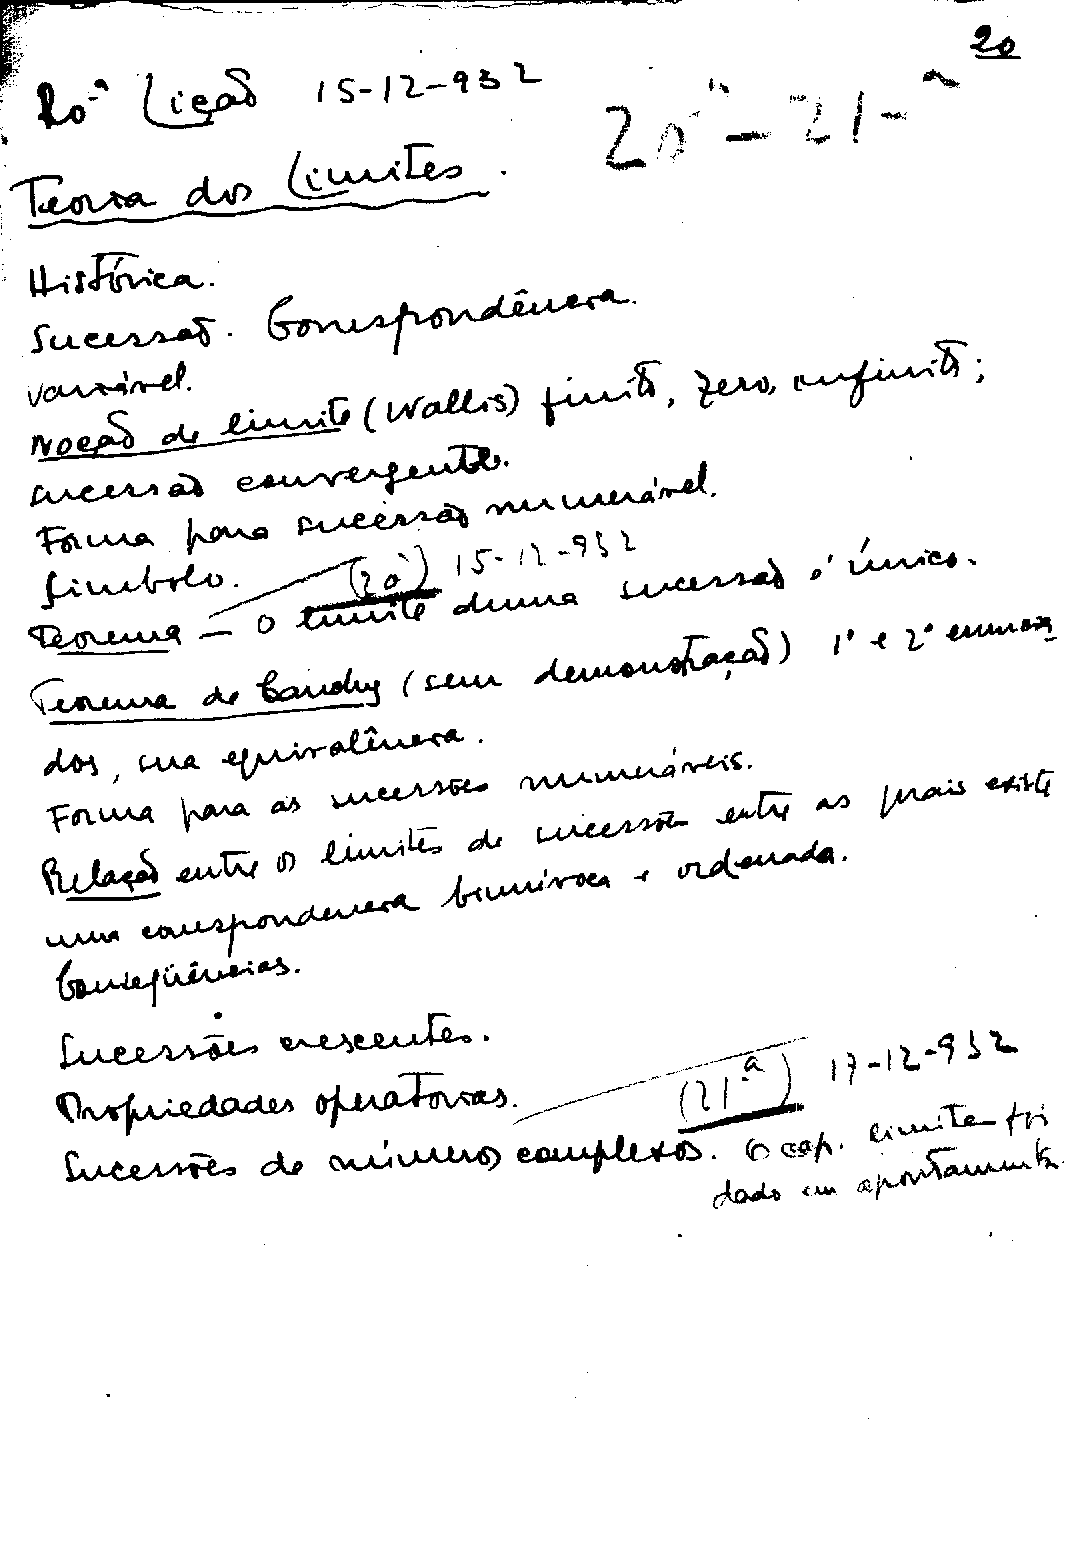 20
20.ª Lição 15-12-932
20ª - 21-ª
Teoria dos Limites.
Histórica.
Sucessão. Correspondência.
variável.
Noção de limite (Wallis) finito, zero, infinito;
sucessão convergente.
Forma para sucessão numerável.
Símbolo. (20ª) 15-12-932
Teorema — O limite duma sucessão é único.
Teorema de Cauchy (sem demonstração) 1º e 2º enuncia
dos, sua equivalência.
Forma para as sucessões numeráveis.
Relação entre os limites de sucessões entre as quais existe
uma correspondencia biunívoca e ordenada.
Conseqüências.
Sucessões crescentes.
Propriedades operatorias. (21-ª) 17-12-932
Sucessões de números complexos. O cap. limites foi
dado em apontamentos